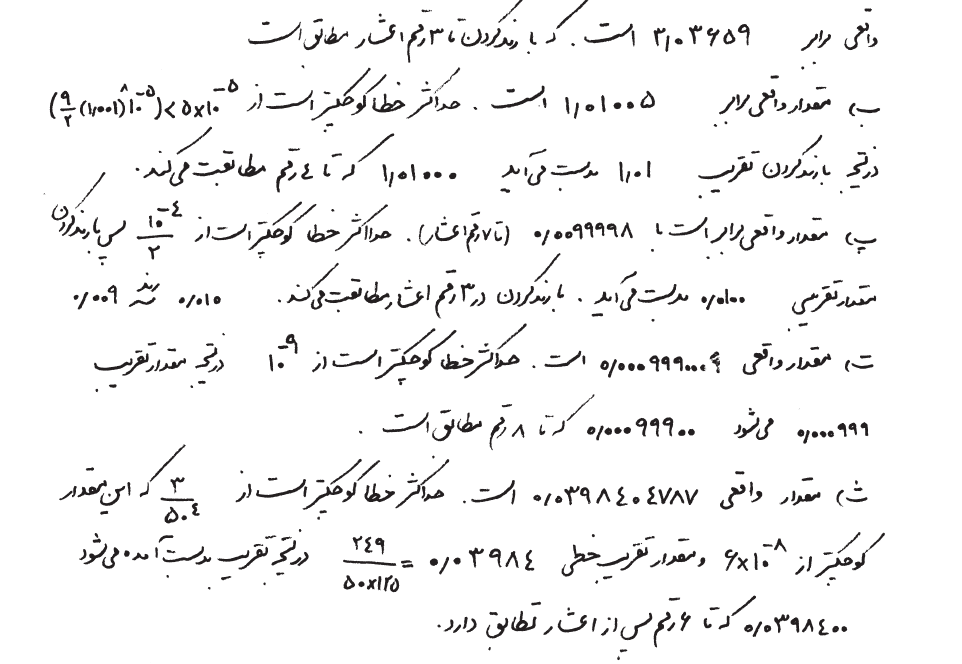 واقعی برابر ۳٫۰۳۶۵۹ است. که با رند کردن تا ۳ رقم اعشار مطابق است
ب) مقدار واقعی برابر ۱٫۰۱۰۰۵ است. حداکثر خطا کوچکتر است از (۹/۲ (۱٫۰۰۱)^۸ ۱۰^-۵) < ۵×۱۰^-۵
درنتیجه با رند کردن تقریب ۱٫۰۱ بدست می‌آید ۱٫۰۱۰۰۰ که تا ٤ رقم مطابقت می‌کند.
پ) مقدار واقعی برابر است با ۰٫۰۰۹۹۹۹۸ (تا ۷ رقم اعشار). حداکثر خطا کوچکتر است از ۱۰^-٤/۲ پس با رند کردن
مقدار تقریبی ۰٫۰۱۰۰ بدست می‌آید. با رند کردن در ۳ رقم اعشار مطابقت می‌کند. ۰٫۰۱۰ رند سه ۰٫۰۰۹
ت) مقدار واقعی ۰٫۰۰۰۹۹۹۰۰۰ است. حداکثر خطا کوچکتر است از ۱۰^-۹ درنتیجه مقدار تقریب
۰٫۰۰۰۹۹۹ می‌شود ۰٫۰۰۰۹۹۹۰۰ که تا ۸ رقم مطابق است.
ث) مقدار واقعی ۰٫۰۳۹۸٤۰٤۷۸۷ است. حداکثر خطا کوچکتر است از ۳/۵۰^٤ که این مقدار
کوچکتر از ۶×۱۰^-۸ و مقدار تقریب خطی ۰٫۰۳۹۸٤ = ۲٤۹/۵۰×۱۲۵ درنتیجه تقریب بدست آمده می‌شود
۰٫۰۳۹۸٤۰۰ که تا ۶ رقم پس از اعشار تطابق دارد.